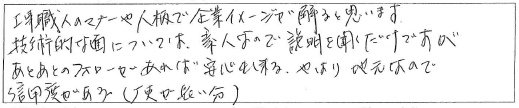 工事職人のマナーや人柄で企業イメージが解ると思います
技術的な面については、素人なので説明を聞くだけですが
あとあとのフォローがあれば安心出来る、やはり地元なので
信用度がある(歴史が長い分)